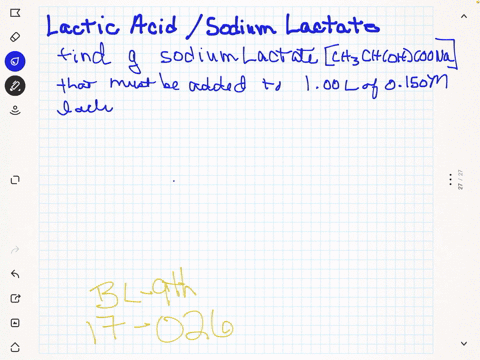 Lactic Acid / Sodium Lactate
find g sodium Lactate [CH3CH(OH)COONa]
that must be added to 1.00 L of 0.150M
BL-9th
17-026